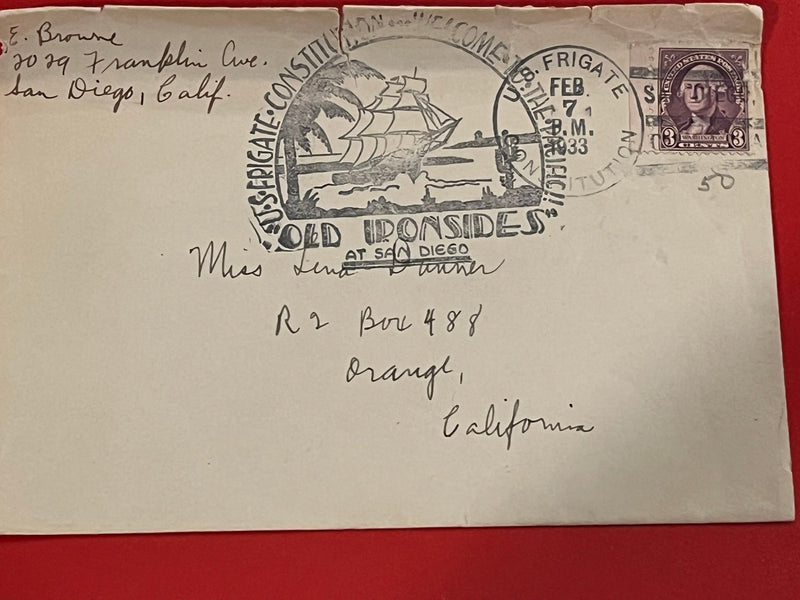 E. Browne
2029 Franklin Ave.
San Diego, Calif.
U.S. FRIGATE • CONSTITUTION ... WELCOME TO THE PACIFIC!!
OLD IRONSIDES
AT SAN DIEGO
U.S. FRIGATE
FEB
7
P.M.
1933
CONSTITUTION
UNITED STATES POSTAGE
WASHINGTON
3 CENTS 3
50
Miss Lena Danner
R 2 Box 488
Orange,
California